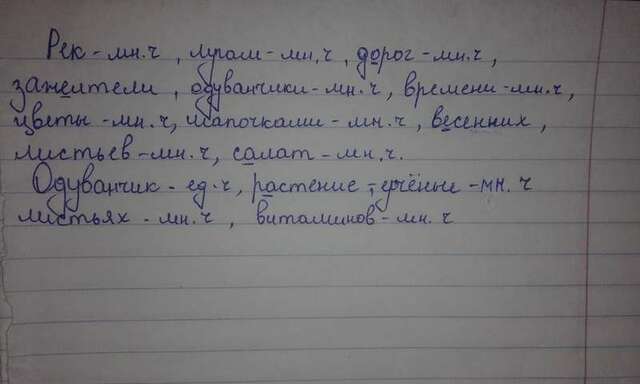 Рек - мн.ч, лугам - мн.ч, дорог - мн.ч,
одуванчики - мн.ч, времени - мн.ч,
цветы - мн.ч, шапочками - мн.ч, весенних,
листьев - мн.ч, салат - мн.ч.
Одуванчик - ед.ч, растение, учёные - мн.ч
листьях - мн.ч, витаминов - мн.ч